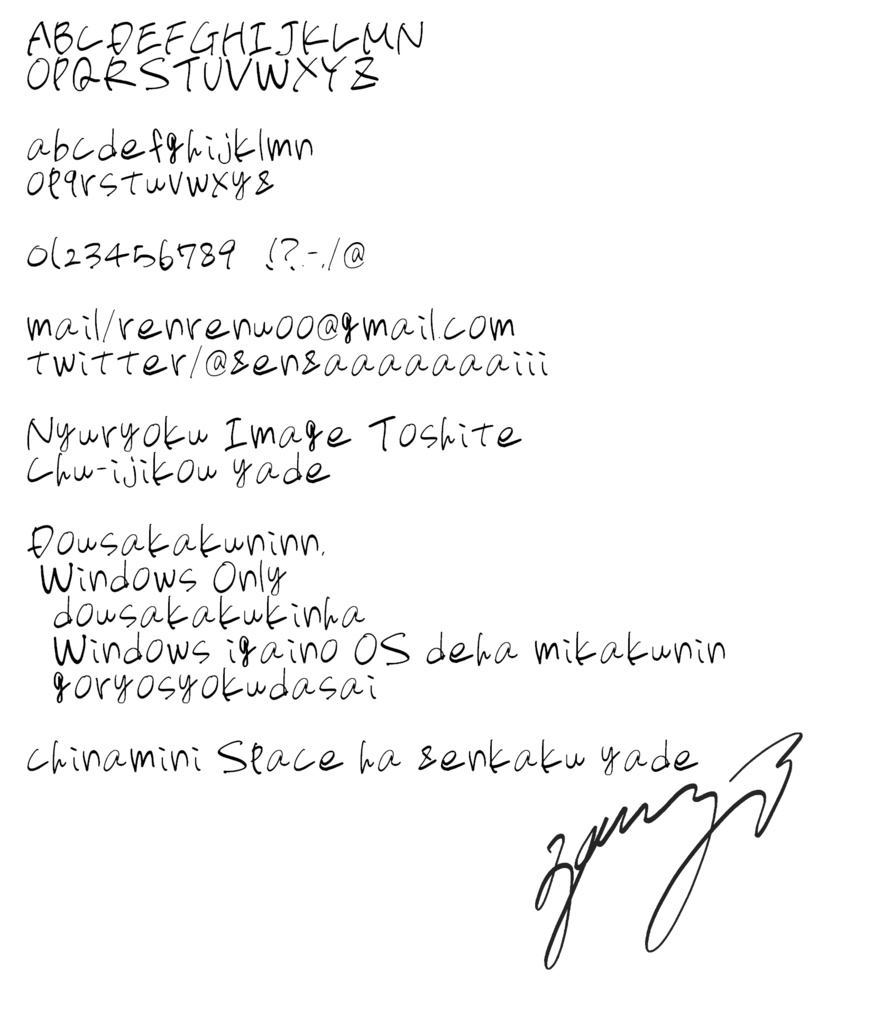 ABCDEFGHIJKLMN
OPQRSTUVWXYZ
abcdefghijklmn
opqrstuvwxyz
0123456789 !?-./@
mail/renrenwoo@gmail.com
twitter/@zenzaaaaaaaiii
Nyuryoku Image Toshite
Chu-ijikou yade
Dousakakuninn.
Windows Only
dousakakukinha
Windows igaino OS deha mikakunin
goryosyokudasai
chinamini Space ha zenkaku yade